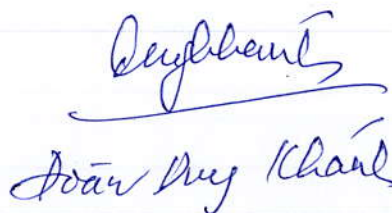 Duykhanh
Đoàn Duy Khánh